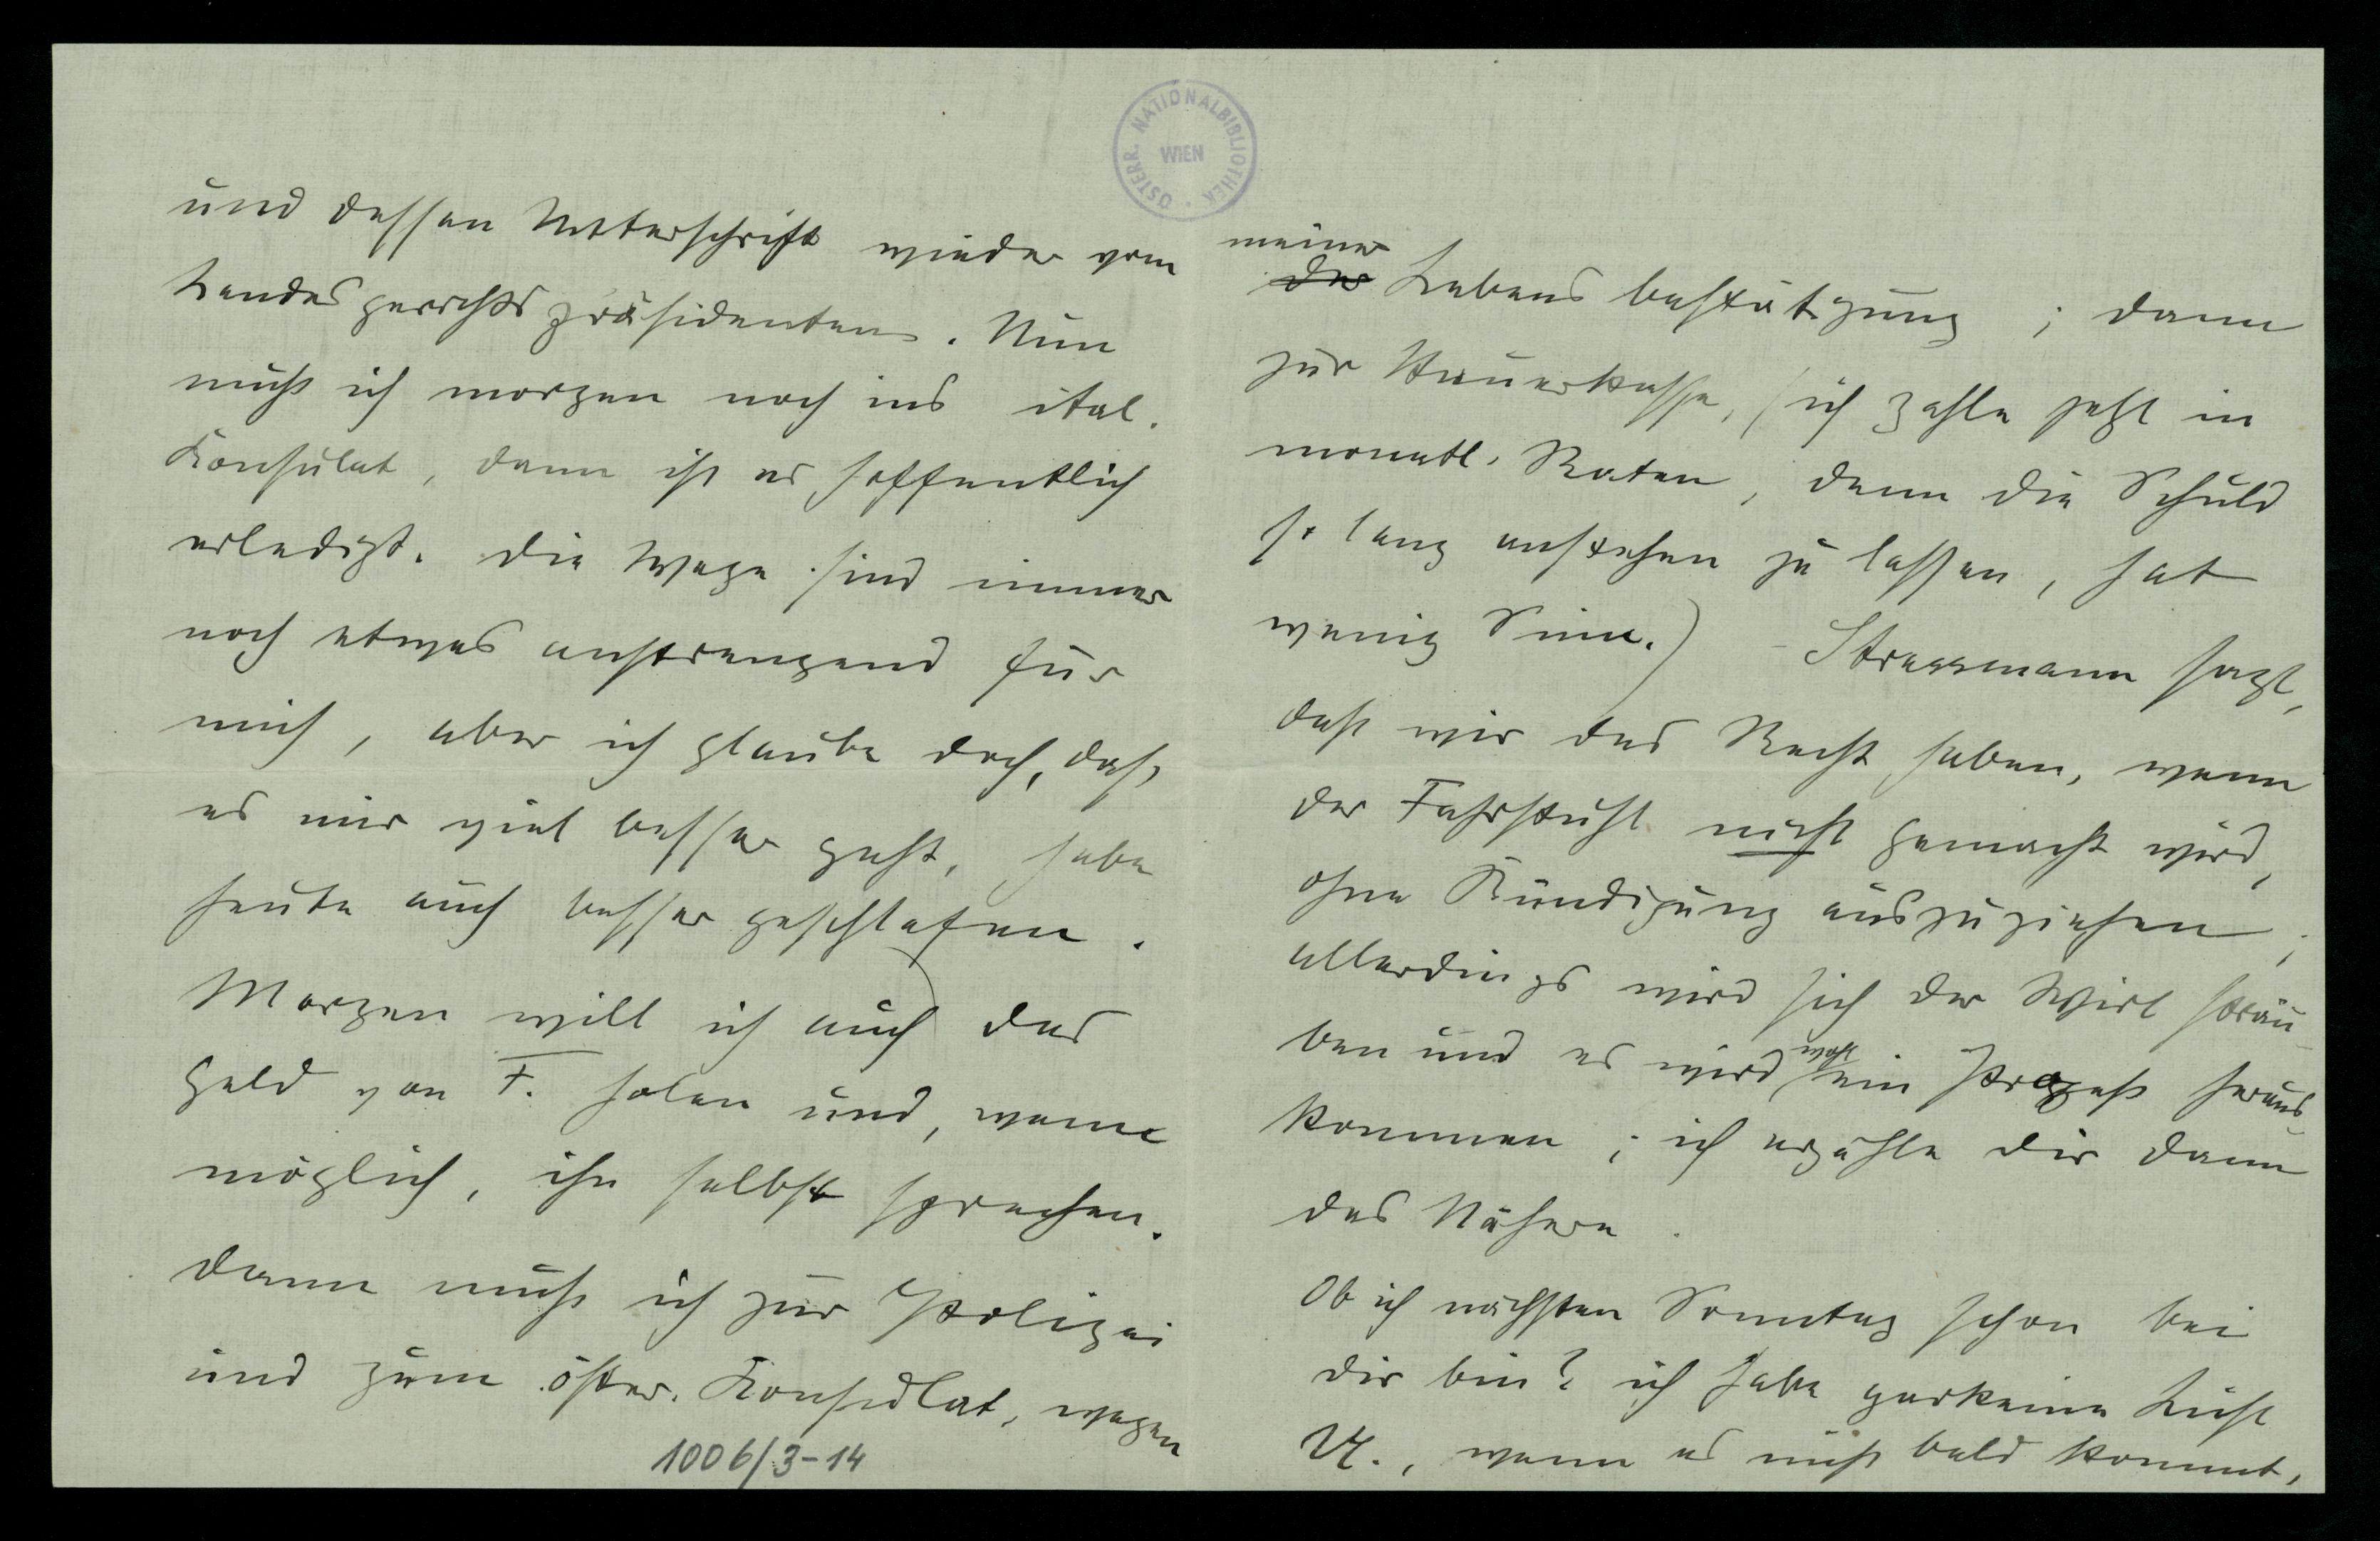 ÖSTERR. NATIONALBIBLIOTHEK
WIEN
und dessen Unterschrift wieder vom
Landesgerichtspräsidenten. Nun
muß ich morgen noch ins ital.
Konsulat, dann ist es hoffentlich
erledigt. Die Wege sind immer
noch etwas anstrengend für
mich, aber ich glaube doch, daß
es mir viel besser geht, habe
heute auch besser geschlafen.
Morgen will ich auch das
Geld von F. holen und, wenn
möglich, ihn selbst sprechen.
Dann muß ich zur Polizei
und zum öster. Konsulat, wegen
1006/3-14
meiner
der Lebensbestätigung; dann
zur Steuerkasse, (ich zahle jetzt in
monatl. Raten, denn die Schuld
so lang anstehen zu lassen, hat
wenig Sinn.) - Strassmann sagt,
daß wir das Recht haben, wenn
der Fahrstuhl nicht gemacht wird,
ohne Kündigung auszuziehen;
allerdings wird sich der Wirt sträu-
ben und es wird wohl ein Prozeß heraus-
kommen; ich erzähle dir dann
das Nähere.
Ob ich nächsten Sonntag schon bei
dir bin? ich habe garkeine Lust
U., wenn es nicht bald kommt,